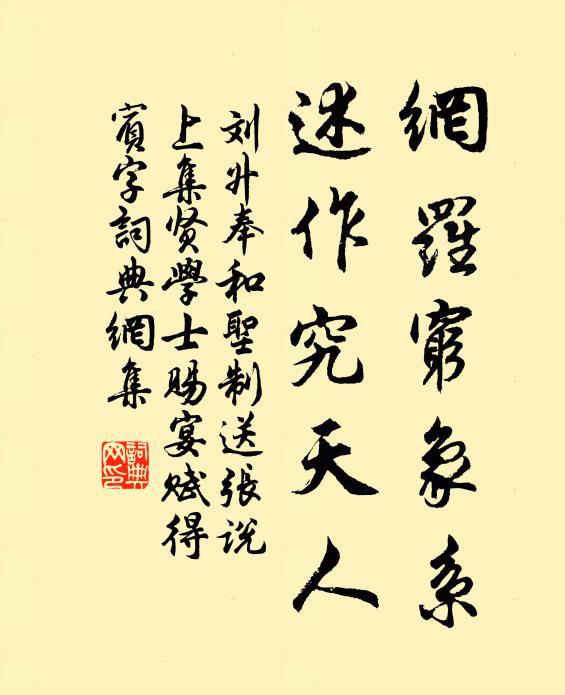 網羅窮象系
述作究天人
刘升奉和聖制送張说
上集贤學士賜宴赋得
賓字詞典網集
詞典网印